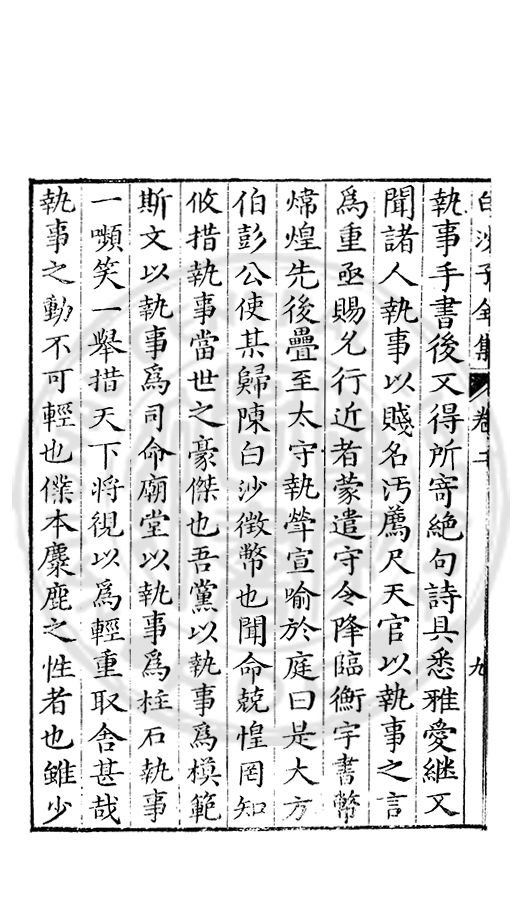 白沙子全集 卷二 九
執事手書後又得所寄絶句詩具悉雅愛繼又
聞諸人執事以賤名汚薦尺天官以執事之言
爲重亟賜允行近者蒙遣守令降臨衡宇書幣
煒煌先後疊至太守執辇宣喻於庭曰是大方
伯彭公使某歸陳白沙徵幣也聞命兢惶罔知
攸措執事當世之豪傑也吾黨以執事爲模範
斯文以執事爲司命廟堂以執事爲柱石執事
一嚬笑一舉措天下將視以爲輕重取舍甚哉
執事之動不可輕也僕本麋鹿之性者也雖少